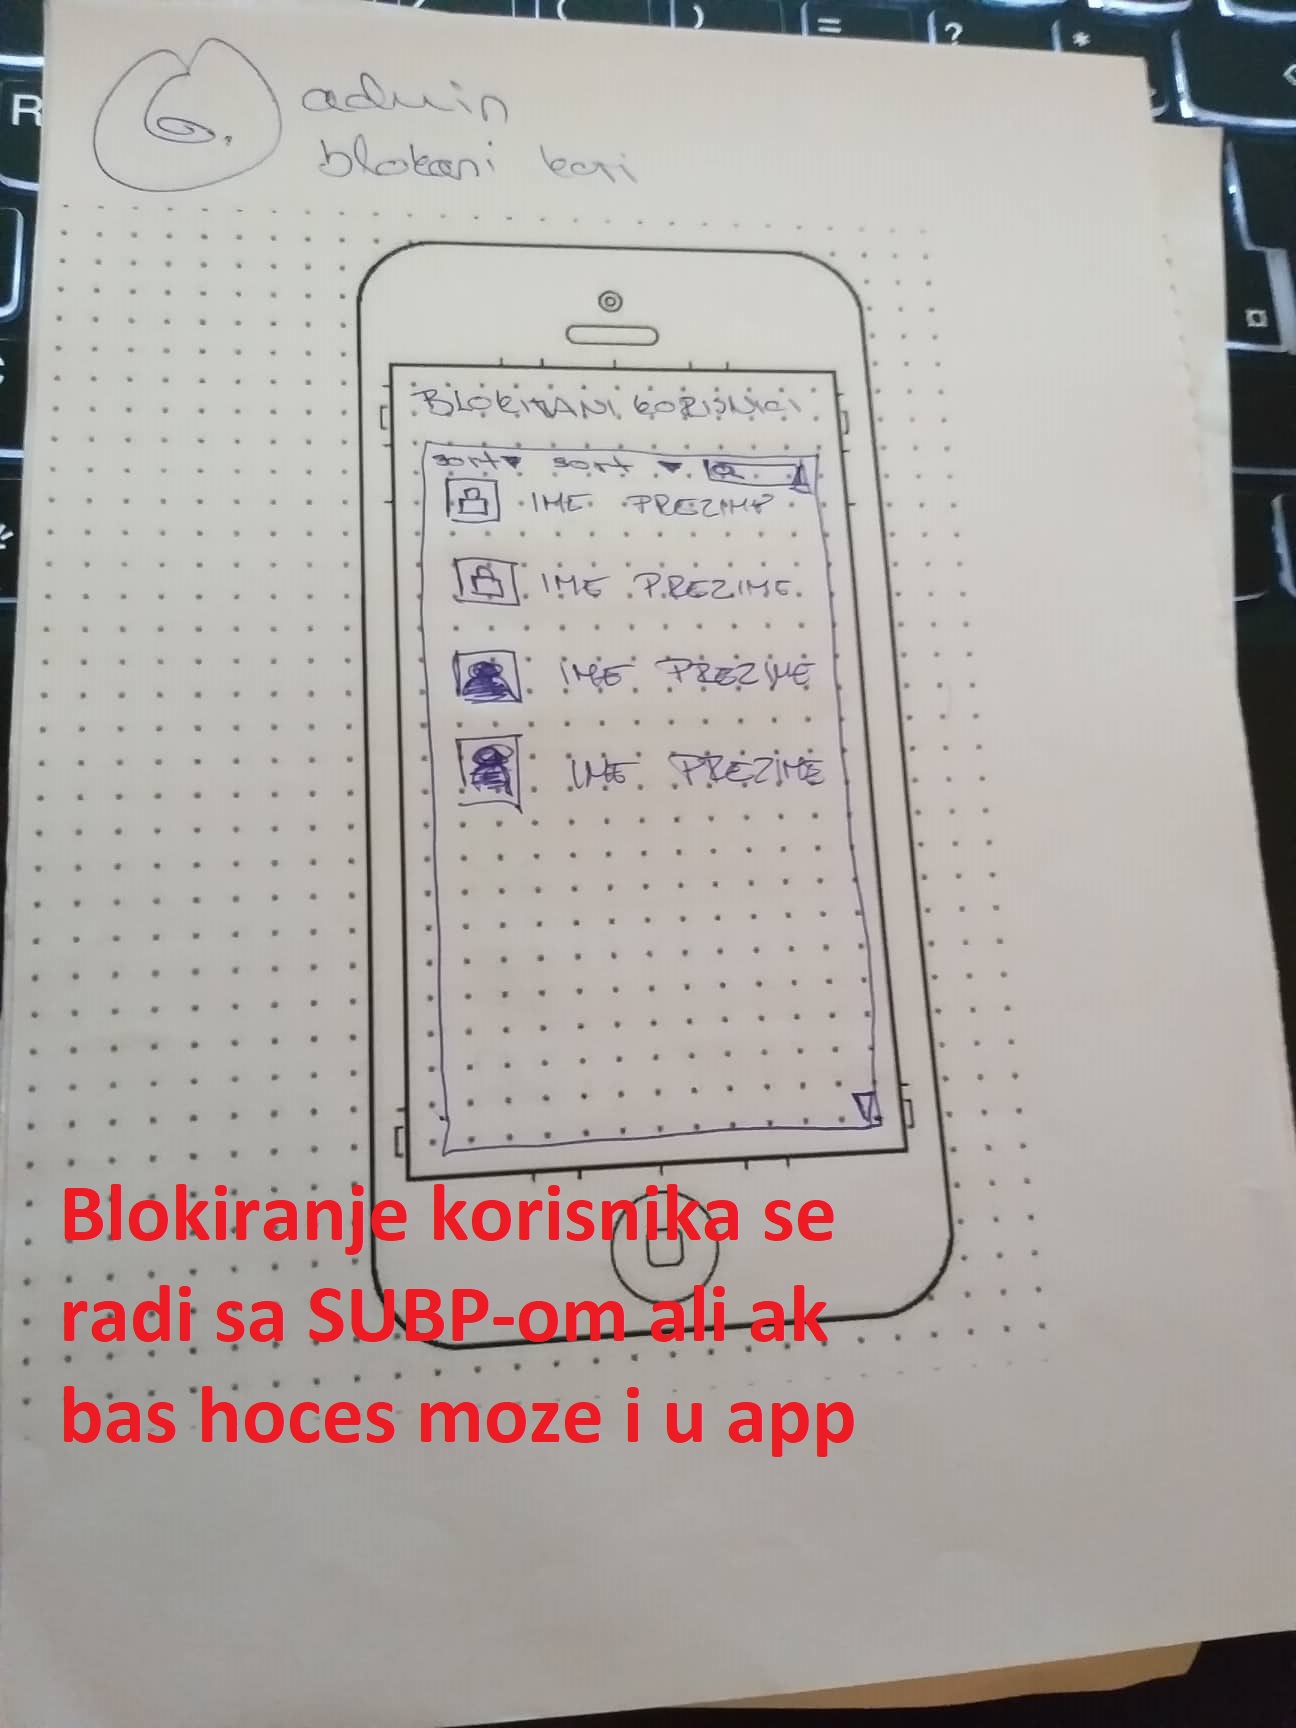 6. admin
blokani kori
BLOKIRANI KORISNICI
sort sort
IME PREZIME
IME PREZIME
IME PREZIME
IME PREZIME
Blokiranje korisnika se
radi sa SUBP-om ali ak
bas hoces moze i u app